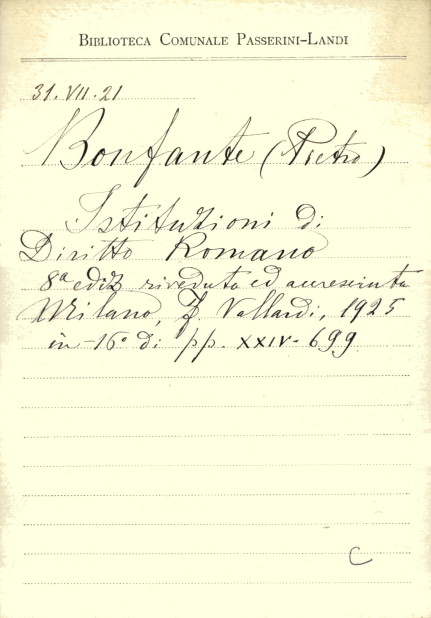 BIBLIOTECA COMUNALE PASSERINI-LANDI
31. VII. 21
Bonfante (Pietro)
Istituzioni di
Diritto Romano
8ª ediz riveduta ed accresciuta
Milano, F. Vallardi, 1925
in-16° di pp. XXIV-699
C